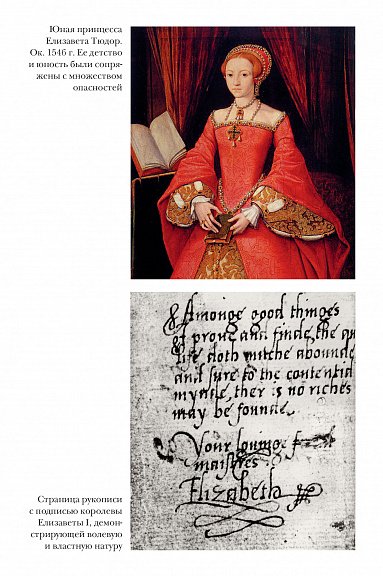 Юная принцесса
Елизавета Тюдор.
Ок. 1546 г. Ее детство
и юность были сопря-
жены с множеством
опасностей
Amonge good thinges
I prove and finde, the qu
life doth muche abounde
and sure to the contentid
mynde, ther is no riches
may be founde.
Your lovinge
maistres
Elizabeth
Страница рукописи
с подписью королевы
Елизаветы I, демон-
стрирующей волевую
и властную натуру